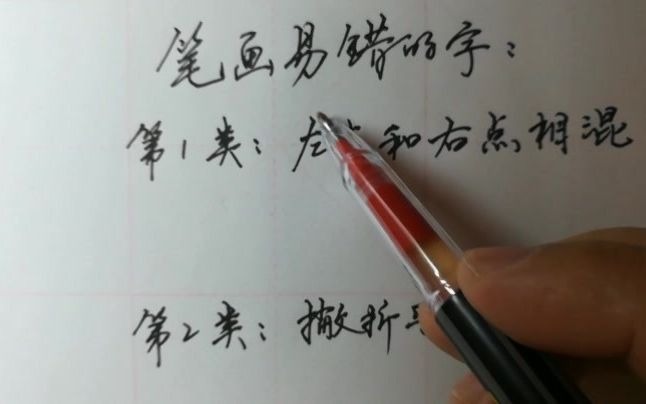 笔画易错的字：
第1类：左点和右点相混
第2类：撇折